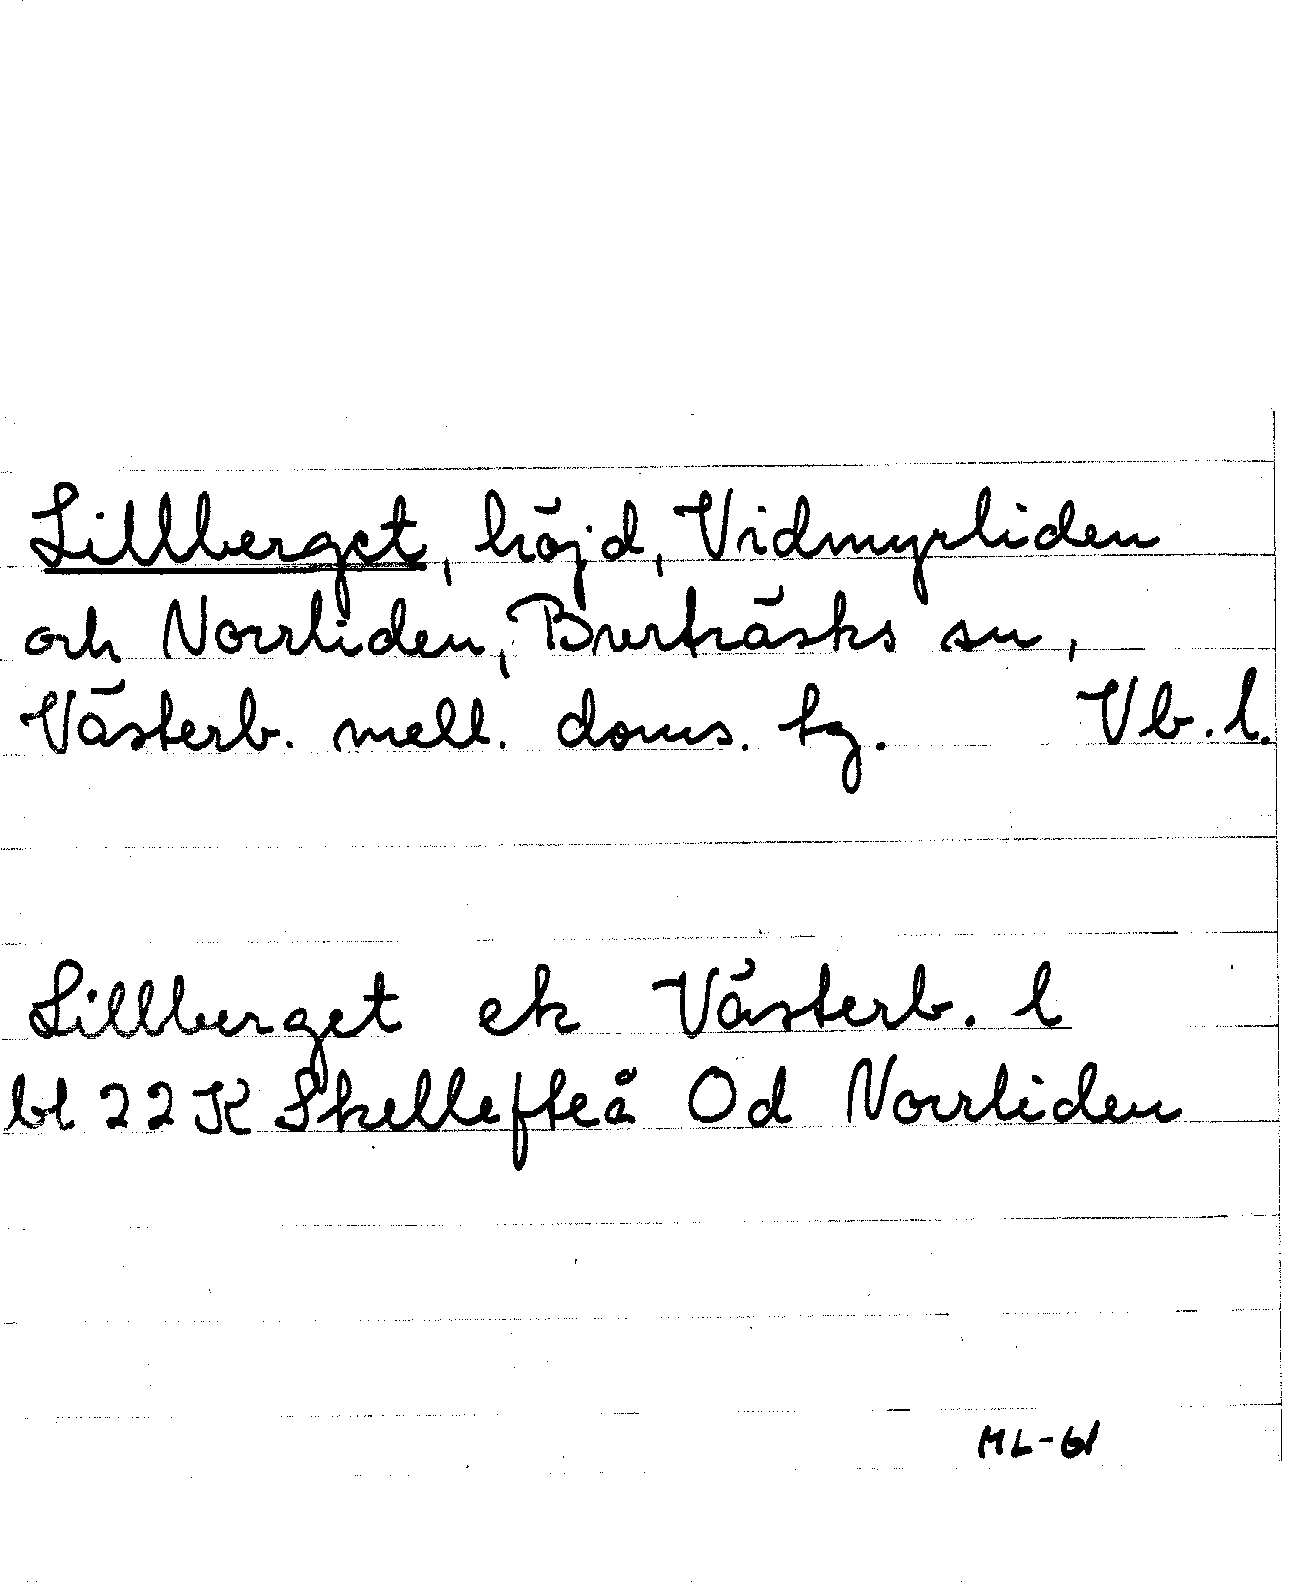 Lillberget, höjd, Vidmyrliden
och Norrliden, Burträsks sn,
Västerb. mell. doms. tg. Vb. l.
Lillberget ek Västerb. l
bl 22 K Skellefteå Od Norrliden
ML-61